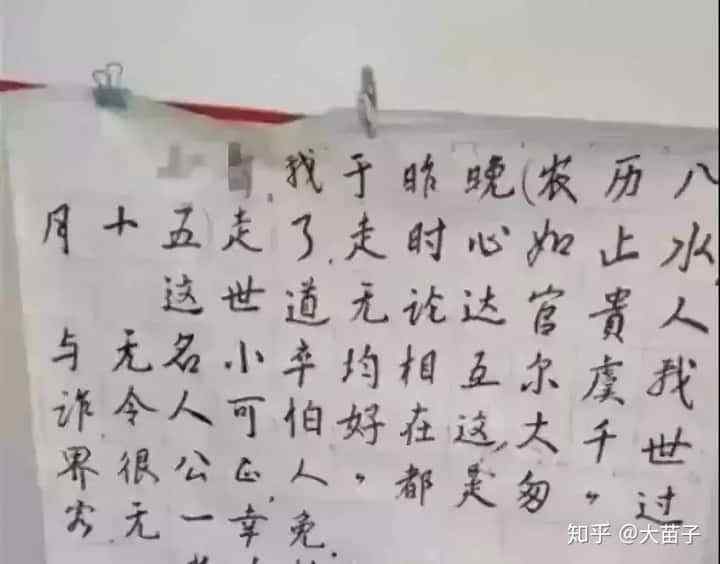 我于昨晚(农历八
月十五)走了,走时心如止水,
这世道无论达官贵人
与无名小卒均相互尔虞我
诈,令人可怕,好在这,大千世
界很公正,人〃都是匆〃过
客,无一幸免.
知乎 @大苗子